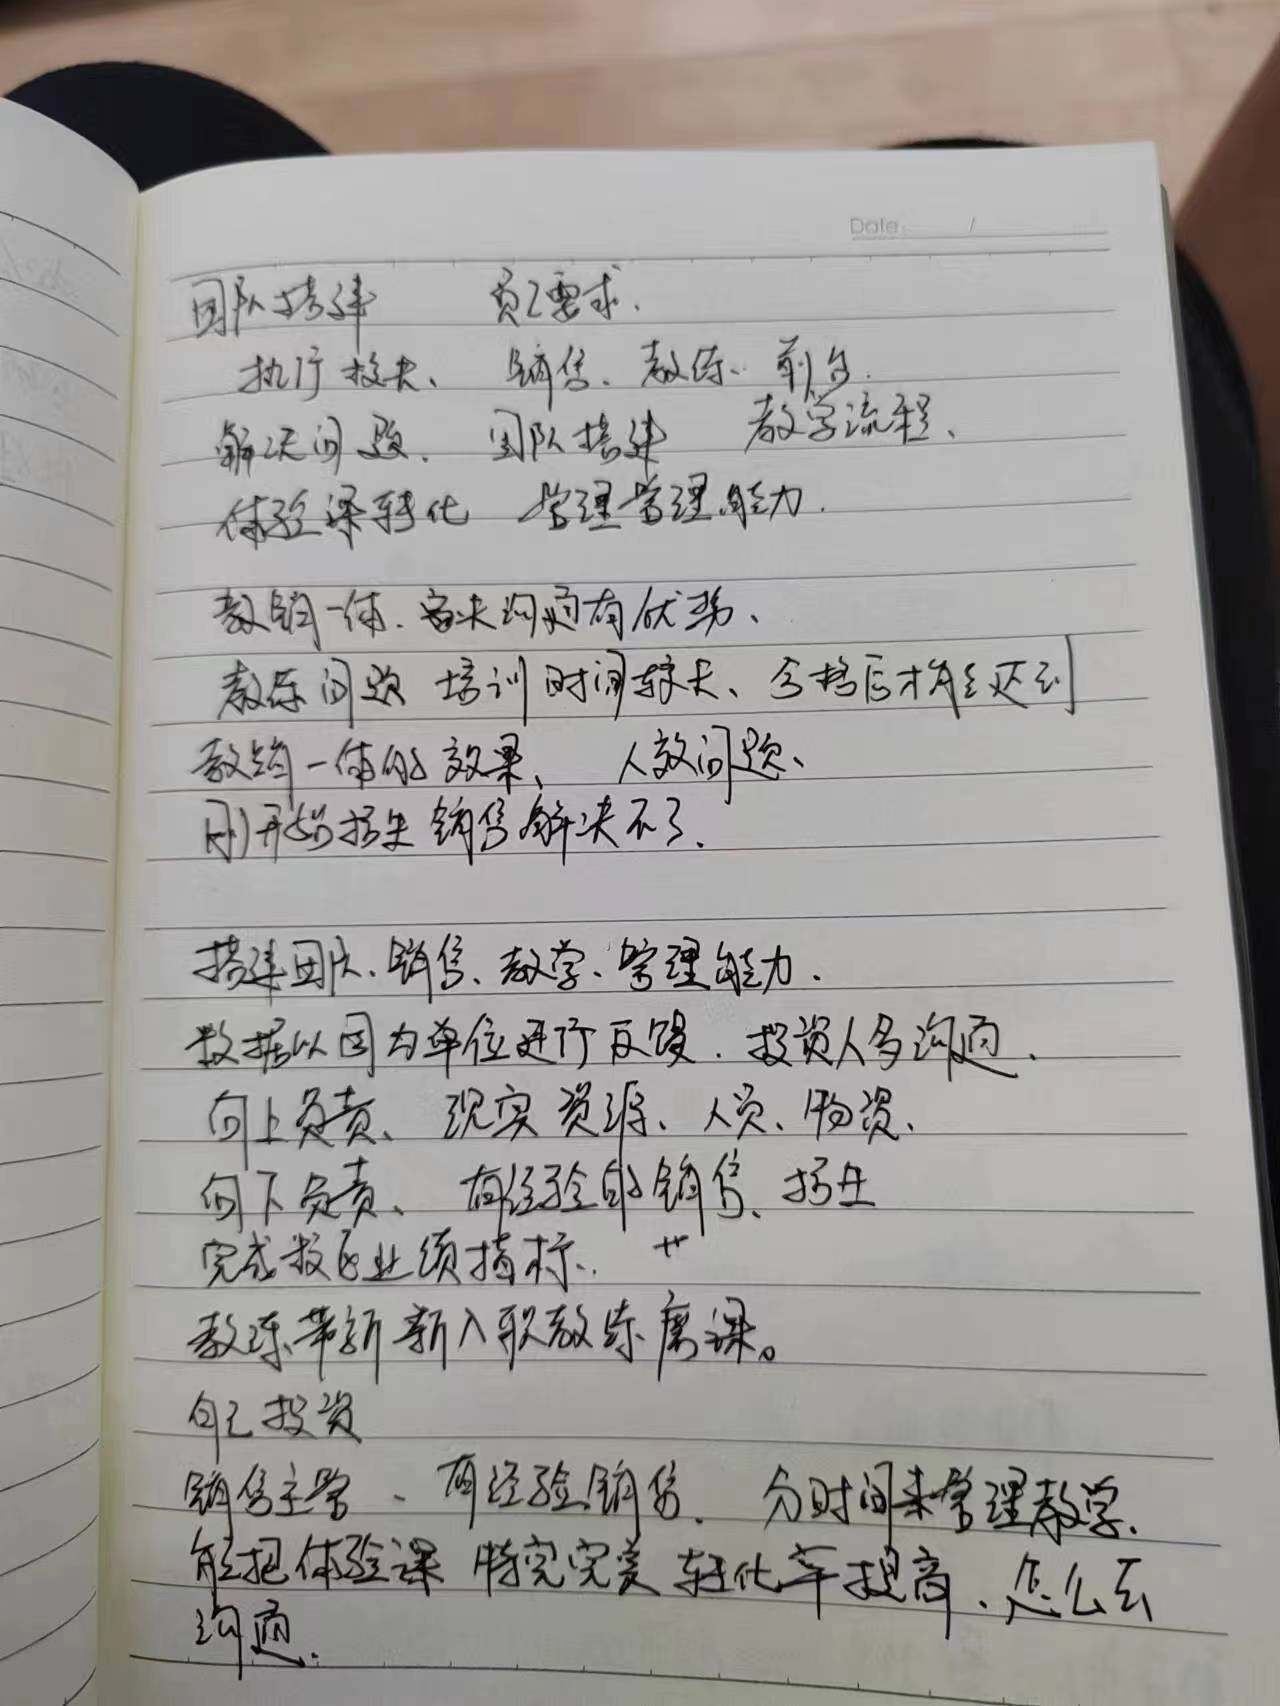 Date: /
团队搭建 员工要求.
执行校长、 销售、教练、前台.
解决问题. 团队搭建 教学流程、
体验课转化 管理管理能力.
教销一体. 客夫沟通有优势、
教练问题 培训时间较长、合格后才能达到
教销一体的效果、 人效问题、
刚开始 销售解决不了.
搭建团队、销售、教学、管理能力.
数据以周为单位进行反馈. 投资人多沟通.
向上负责、 现实资源、人员、物资、
向下负责、 有经验的销售、
完成校区业绩指标.
教练带新 新入职教练磨课。
自己投资
销售主管、有经验销售. 分时间来管理教学.
能把体验课 完美 转化率提高、怎么去
沟通.